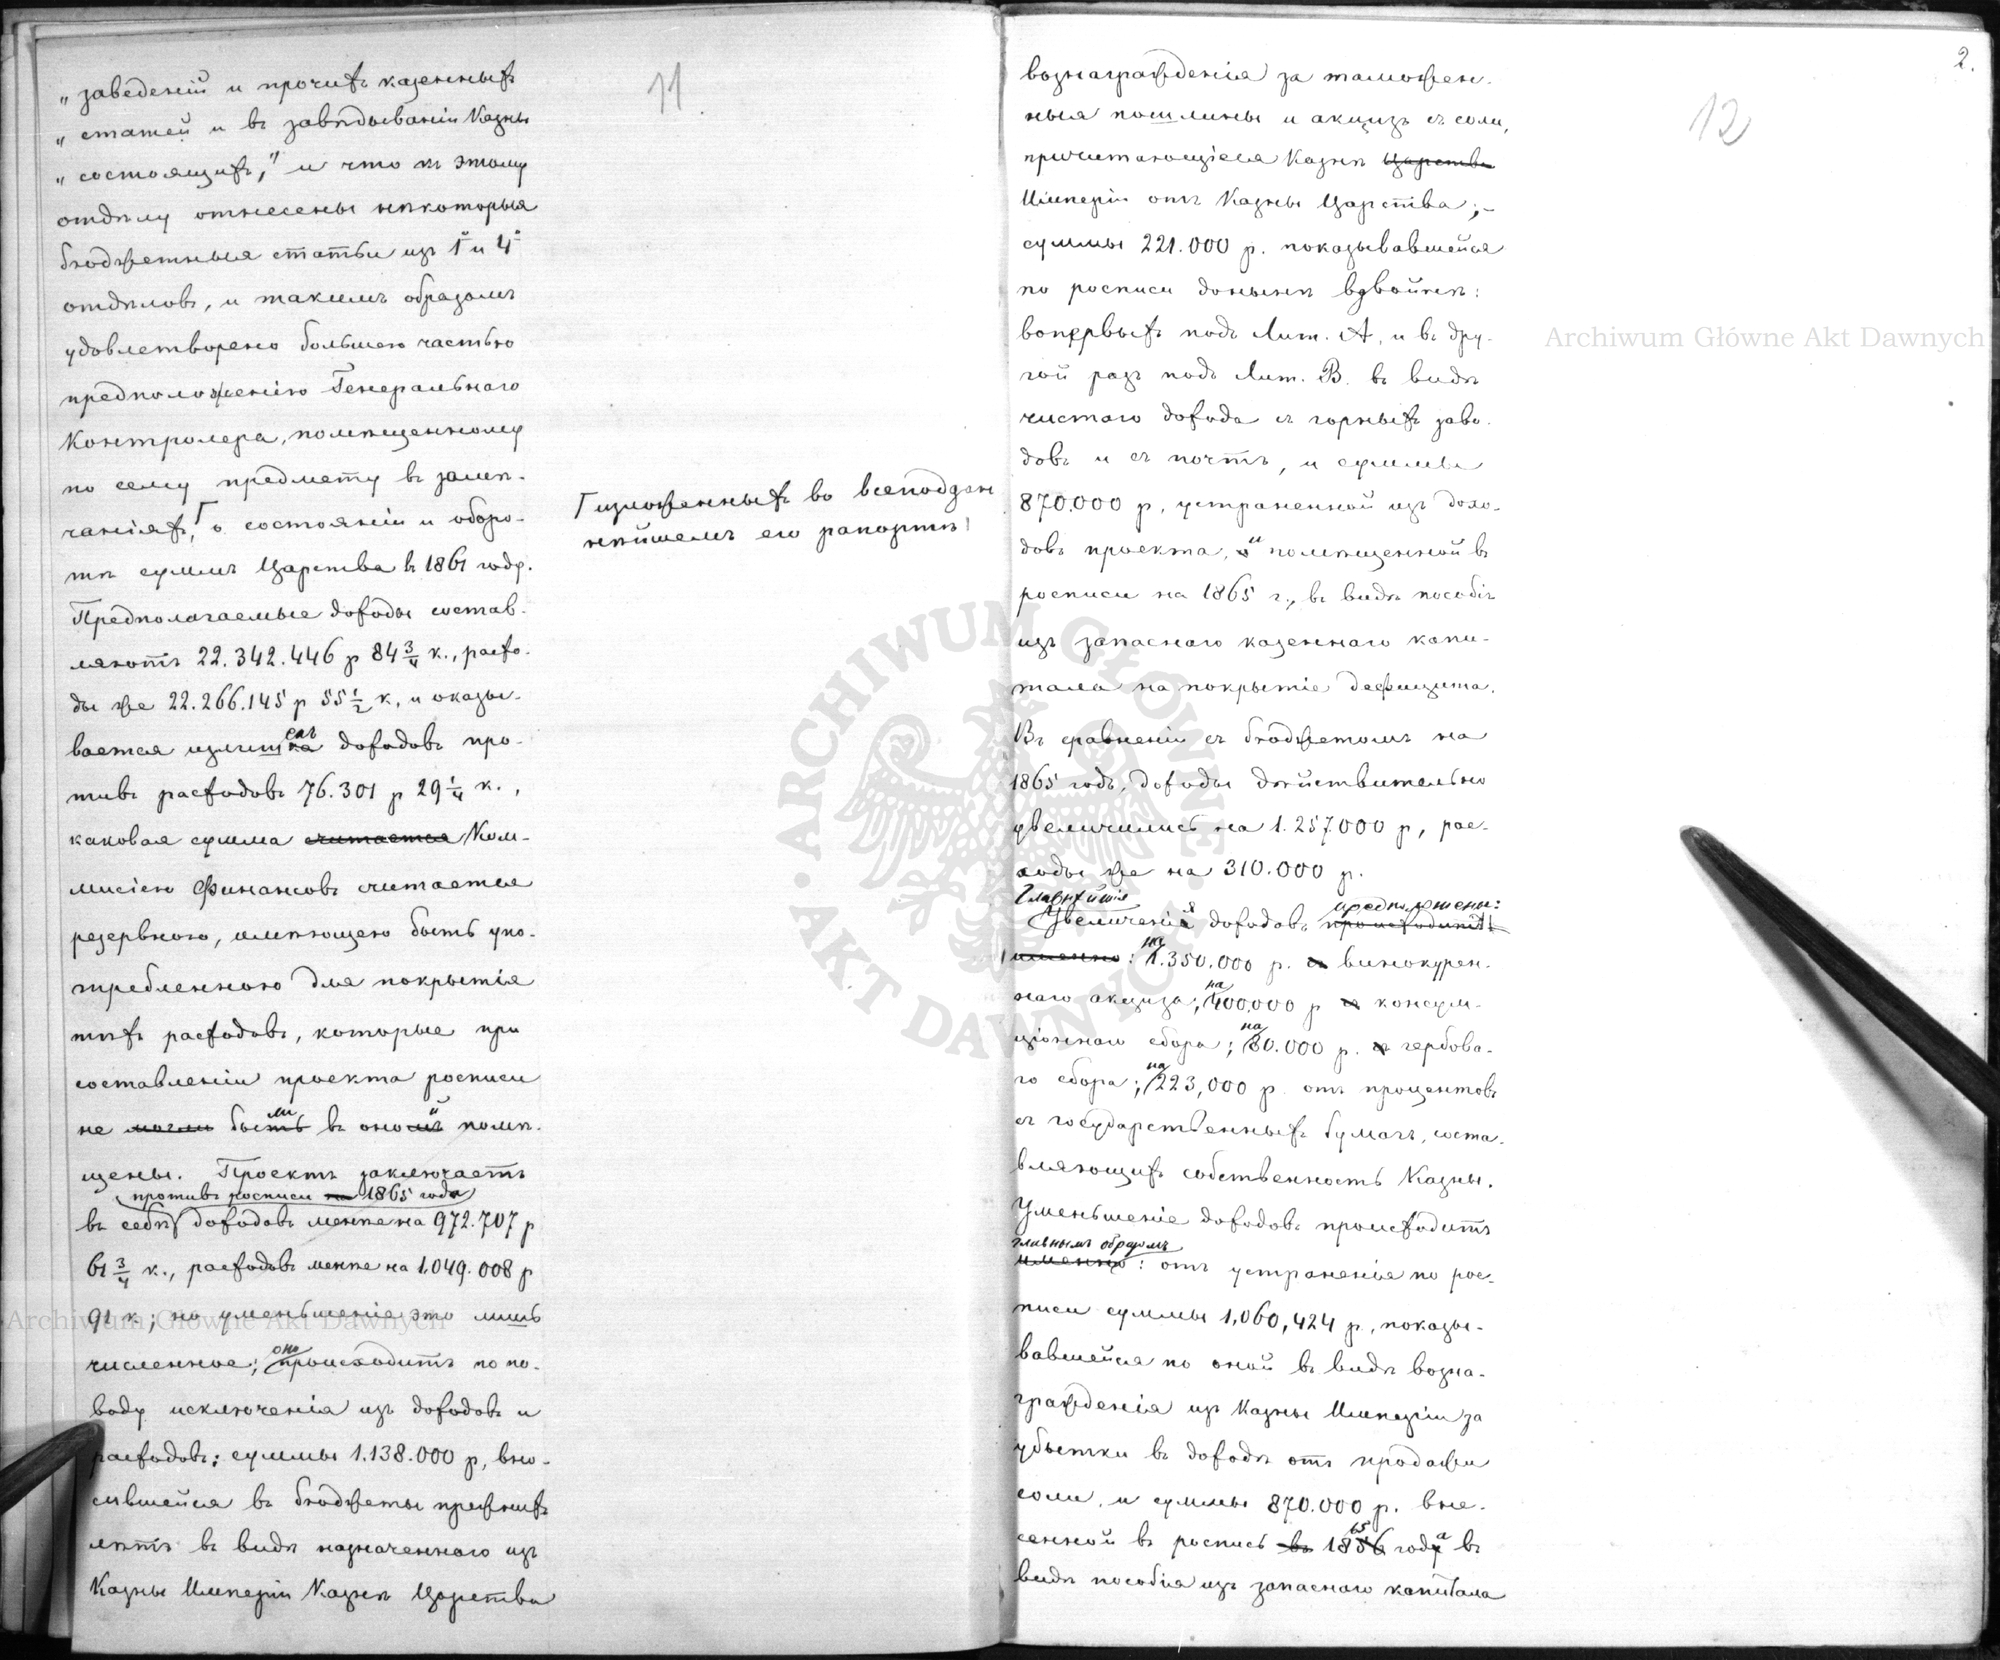 11
„заведеній и прочихъ казенныхъ
„статей и въ завѣдываніи Казны
„состоящихъ," и что къ этому
отдѣлу отнесены нѣкоторыя
бюджетныя статьи изъ 1го и 4го
отдѣловъ, и такимъ образомъ
удовлетворено большею частью
предположенію Генеральнаго
Контролера, помѣщенному
по сему предмету въ замѣ-
чаніяхъ, Г о состояніи и оборо-
тѣ суммъ Царства въ 1861 году.
Г изложенныхъ во всеподдан
нѣйшемъ его рапортѣ
Предполагаемые доходы состав-
ляютъ 22.342.446 р 84 3/4 к., расхо-
ды же 22.266.145 р 55 1/2 к, и оказы-
вается излишекъ доходовъ про-
тивъ расходовъ 76.301 р 29 1/4 к.,
каковая сумма считается Ком-
мисіею Финансовъ считается
резервною, имѣющею быть упо-
требленною для покрытія
тѣхъ расходовъ, которые при
составленіи проекта росписи
не могли были въ оной помѣ-
щены. Проектъ заключаетъ
противъ росписи на 1865 года
въ себѣ доходовъ менѣе на 972.707 р
61 3/4 к., расходовъ менѣе на 1.049.008 р
91 к; но уменьшеніе это лишь
численное; оно происходитъ по по-
воду исключенія изъ доходовъ и
расходовъ: суммы 1.138.000 р, вно-
сившейся въ бюджеты прежнихъ
лѣтъ въ видѣ назначеннаго изъ
Казны Имперіи Казнѣ Царства
2.
12
вознагражденія за таможен-
ныя пошлины и акцизъ съ соли,
причитающіеся Казнѣ Царства
Имперіи отъ Казны Царства;-
суммы 221.000 р. показывавшейся
по росписи донынѣ вдвойнѣ:
вопервыхъ подъ Лит. А, и въ дру-
гой разъ подъ Лит. В. въ видѣ
чистаго дохода съ горныхъ заво-
довъ и съ почтъ, и суммы
870.000 р, устраненной изъ дохо-
довъ проекта, и помѣщенной въ
росписи на 1865 г., въ видѣ пособія
изъ запаснаго казеннаго капи-
тала на покрытіе дефицита.
Въ сравненіи съ бюджетомъ на
1865 годъ, доходы дѣйствительно
увеличились на 1.257.000 р, рас-
ходы же на 310.000 р.
Главнѣйшія предположены:
Увеличенія доходовъ происходитъ
именно: на 1.350.000 р. винокурен-
наго акциза; на 400,000 р консум-
ціоннаго сбора; на 80.000 р. гербова-
го сбора; на 223,000 р. отъ процентовъ
съ государственныхъ бумагъ, соста-
вляющихъ собственность Казны.
Уменьшеніе доходовъ происходитъ
главнымъ образомъ
именно: отъ устраненія по рос-
писи суммы 1,060,424 р., показы-
вавшейся по оной въ видѣ возна-
гражденія изъ Казны Имперіи за
убытки въ доходѣ отъ продажи
соли, и суммы 870.000 р. вне-
сенной въ роспись въ 1865 года въ
видѣ пособія изъ запаснаго капитала
Archiwum Główne Akt Dawnych
Archiwum Główne Akt Dawnych
ARCHIWUM GŁÓWNE · AKT DAWNYCH ·